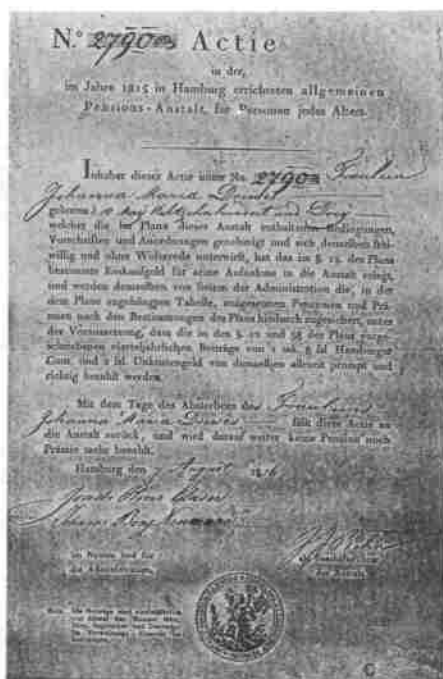 N.º 2790 Actie
in der,
im Jahre 1815 in Hamburg errichteten allgemeinen
Pensions-Anstalt, für Personen jedes Alters.
Inhaber dieser Actie unter No. 2790 Fräulein
Johanna Maria Drewes
gebohren
welcher die im Plane dieser Anstalt enthaltenen Bedingungen,
Vorschriften und Anordnungen genehmigt und sich denselben frei-
willig und ohne Widerrede unterwirft, hat das im §. 15. des Plans
bestimmte Einkaufgeld für seine Aufnahme in die Anstalt erlegt,
und werden demselben von Seiten der Administration die, in der
dem Plane angehängten Tabelle, ausgesetzten Pensionen und Prä-
mien nach den Bestimmungen des Plans hiedurch zugesichert, unter
der Voraussetzung, dass die in den §. 20 und 58 des Plans vorge-
schriebenen vierteljährlichen Beiträge von 2 mk. 8 ßl Hamburger
Cour. und 2 ßl. Unkostengeld von demselben allezeit prompt und
richtig bezahlt werden.
Mit dem Tage des Absterbens des Fräuleins
Johanna Maria Drewes fällt diese Actie an
die Anstalt zurück, und wird darauf weiter keine Pension noch
Prämie mehr bezahlt.
Hamburg den August
im Namen und für
die Administration.
der Anstalt.